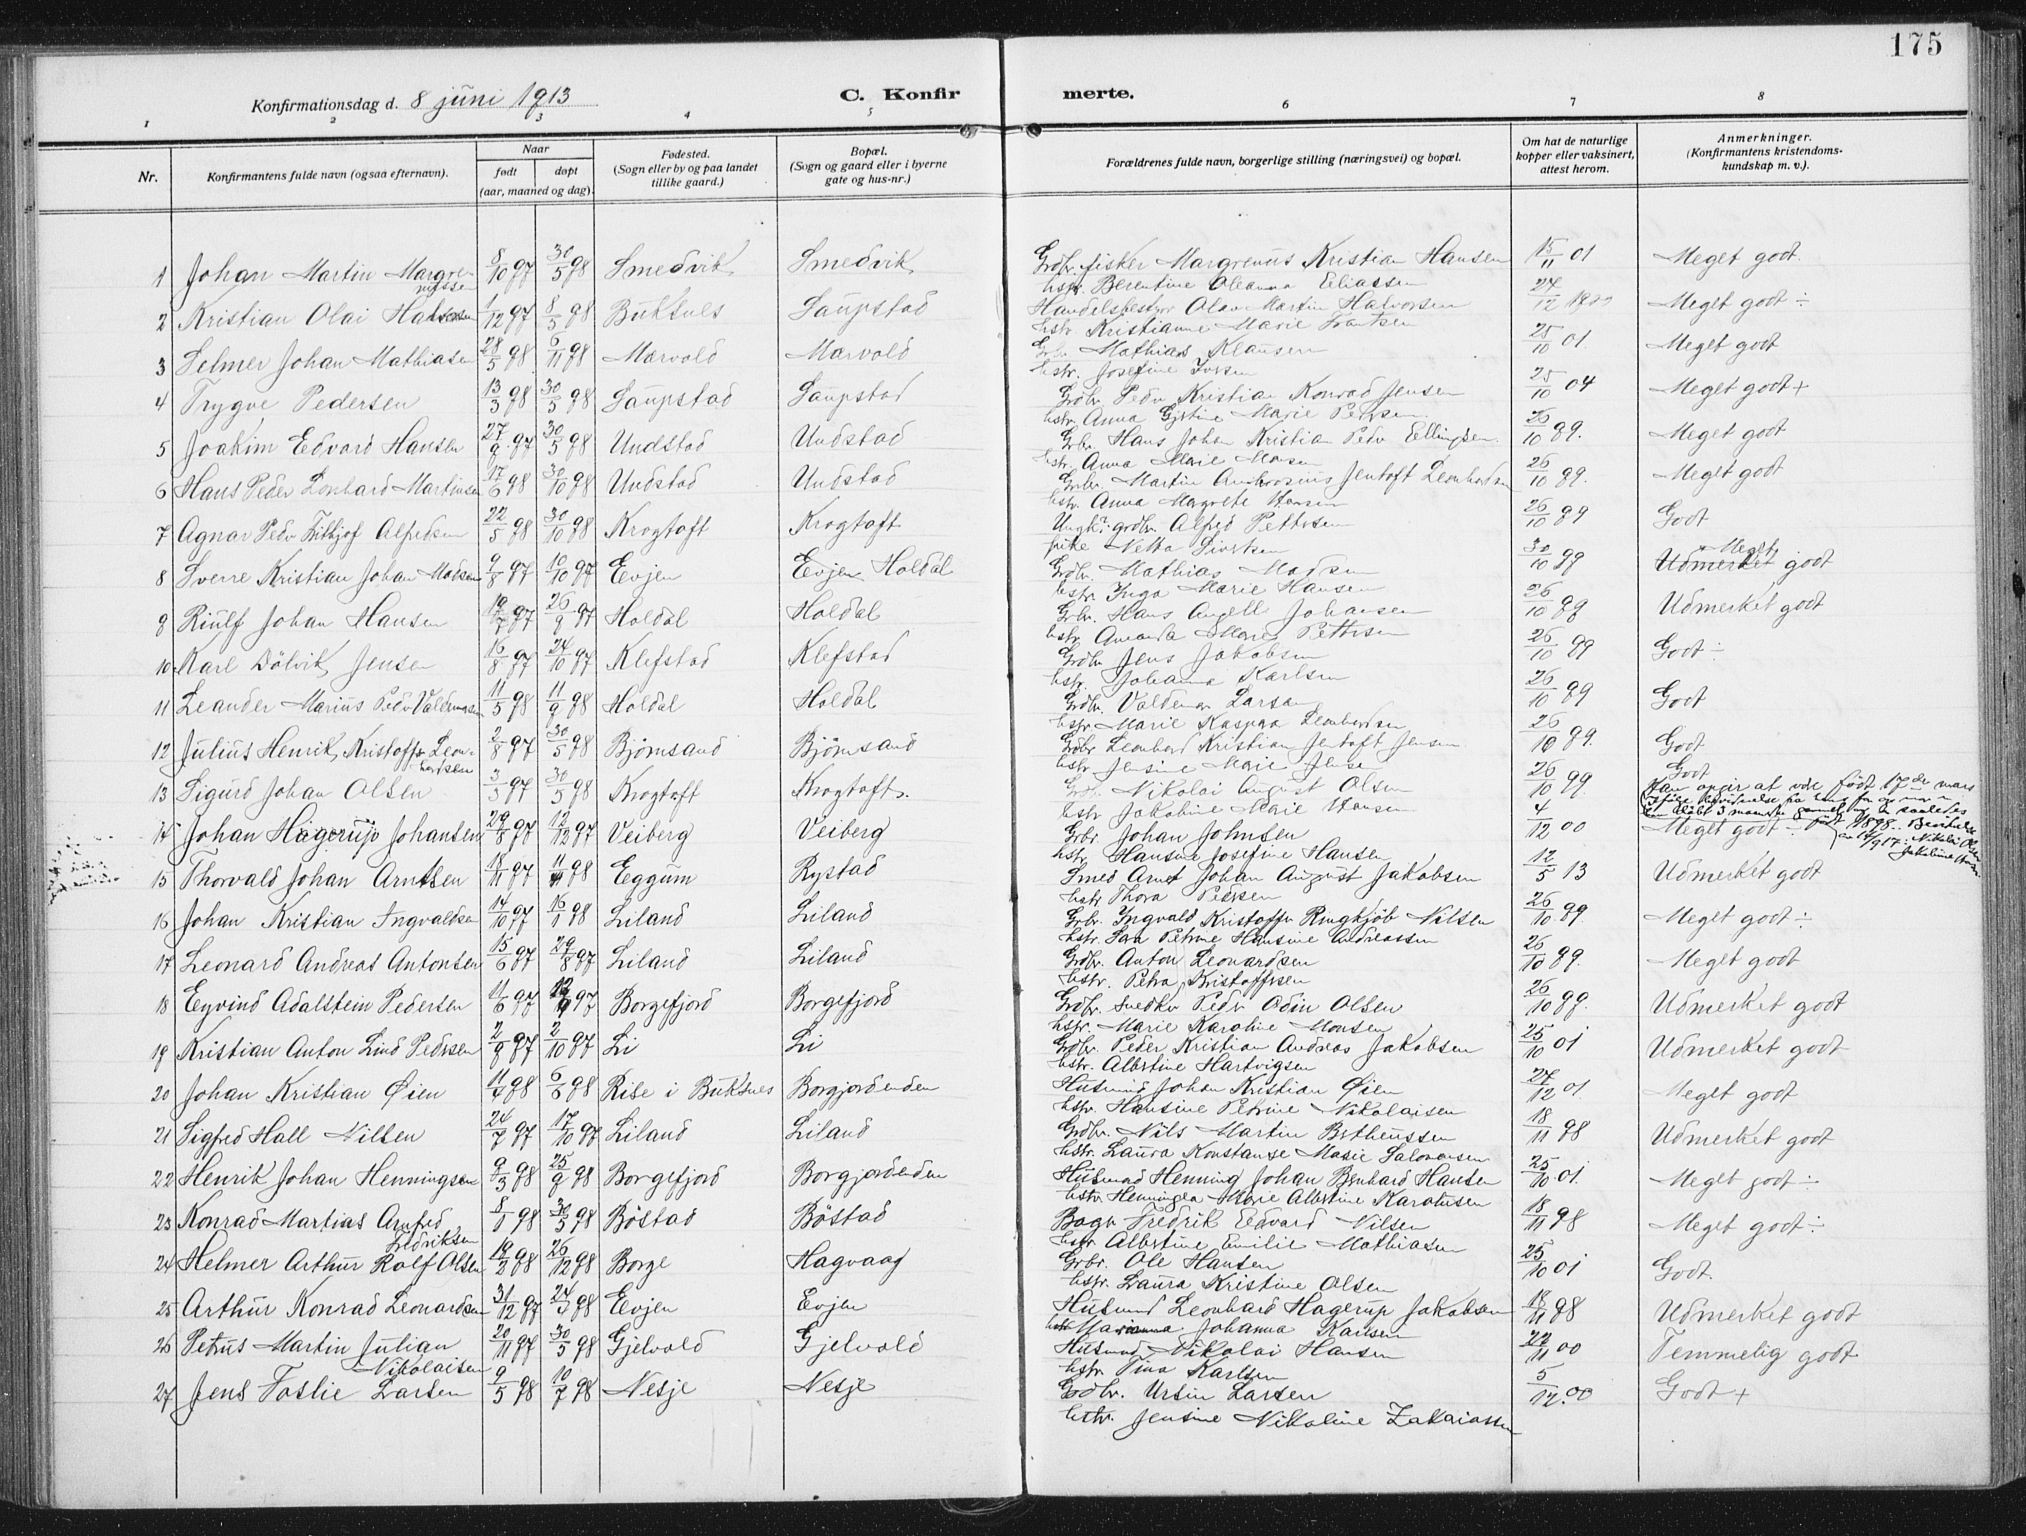 175
Konfirmationsdag d. 8 juni 1913 C. Konfirmerte.
1 2 3 4 5 6 7 8
Nr. Konfirmantens fulde navn (ogsaa efternavn). Naar født døpt (aar, maaned og dag). Fødested. (Sogn eller by og paa landet tillike gaard.) Bopæl. (Sogn og gaard eller i byerne gate og hus-nr.) Forældrenes fulde navn, borgerlige stilling (næringsvei) og bopæl. Om hat de naturlige kopper eller vaksinert, attest herom. Anmerkninger. (Konfirmantens kristendomskundskap m. v.).
1 Johan Martin Margrenussen 8/10 97 30/5 98 Smedvik Smedvik Grdbr. fisker Margrenus Kristian Hansen 15/11 01 Meget godt.
hstr. Berentine Oleanna Eliassen
2 Kristian Olai Halvorsen 1/12 97 8/5 98 Buksnes Saupstad Handelsbestyrer Olav Martin Halvorsen 27/12 Meget godt ÷
hstr. Kristianne Marie Frantsen
3 Selmer Johan Mathiasen 28/5 98 6/11 98 Marvold Marvold Grbr. Mathias Klausen 25/10 01. Meget godt
hstr. Josefine Iversen
4 Trygve Pedersen 13/3 98 30/5 98 Saupstad Saupstad Grdbr. Peder Kristian Konrad Jensen 25/10 04 Meget godt +
hstr. Anna Gjertine Marie Pedersen
5 Joakim Edvard Hansen 27/9 97 30/5 98 Undstad Undstad Grbr. Hans Johan Kristian Peder Ellingsen 26/10 99. Meget godt
hstr. Anna Marie
6 Hans Peder Lonhard Martinsen 17/6 98 30/10 98 Undstad Undstad Grbr. Martin Ambrosius Jentoft Leonhardsen 26/10 99. Meget godt
hstr. Anna Margrete Hansen
7 Agnar Peder Fritjof Alfredsen 22/5 98 30/10 98 Krogtoft Krogtoft Ungk. grdbr. Alfred Pettersen 26/10 99 Godt
pike Netta Sivertsen
8 Sverre Kristian Johan Madsen 9/8 97 10/10 97 Evjen Evjen Holdal Grdbr. Mathias Madsen 30/10 99 Udmerket Meget godt
hstr. Inga Marie Hansen
9 Riulf Johan Hansen 19/7 97 26/9 97 Holdal Holdal Grbr. Hans Angell Johansen 26/10 99 Udmerket godt
hstr. Amanda Marie Pettersen
10 Karl Dölvik Jensen 16/8 97 24/10 97 Klefstad Klefstad Grdbr. Jens Jakobsen 26/10 99 Godt ÷
hstr. Johanna Karlsen
11 Leander Marius Peder Valdemarsen 11/5 98 11/9 98 Holdal Holdal Grdbr. Valdemar Larsen 26/10 99 Godt
hstr. Marie Kaspara Leonhardsen
12 Julius Henrik Kristoffer Leonhardsen 2/8 97 30/5 98 Bjørnsand Bjørnsand Grdbr. Leonhard Kristian Jentoft Jensen 26/10 99. Godt
hstr. Jensine Marie
13 Sigurd Johan Olsen 3/3 97 30/5 98 Krogtoft Krogtoft. Nikolai August Olsen 26/10 99. Godt
Han opgir at være født 17de mars 1898.
hstr. Jakobine Marie Hansen
14 Johan Hagerup Johansen 29/8 97 12/12 97 Veiberg Veiberg Grbr. Johan Johnsen 4/12 00 Meget godt ÷
hstr. Hansine Josefine Hansen
15 Thorvald Johan Arntsen 18/11 97 11/4 98 Eggum Rystad Smed Arnt Johan August Jakobsen 12/5 13 Udmerket godt
hstr. Thora Pedersen
16 Johan Kristian Ingvaldsen 14/10 97 16/1 98 Liland Liland Grbr. Ingvald Kristoffer Ringkjøb Nilsen 26/10 99. Meget godt ÷
hstr. Sara Petrine Hansine Andreassen
17 Leonard Andreas Antonsen 15/6 97 29/8 97 Liland Liland Grdbr. Anton Leonardsen 26/10 99. Meget godt
hstr. Petra Kristoffersen
18 Eyvind Adalstein Pedersen 11/6 97 12/9 97 Borgefjord Borgefjord Grdbr. snedker Peder Odin Olsen 26/10 99. Udmerket godt
hstr. Marie Karoline Monsen
19 Kristian Anton Lind Pedersen 2/9 97 2/10 97 Li Li Grdbr. Peder Kristian Andreas Jakobsen 25/10 01 Udmerket godt
hstr. Albertine Hartvigsen
20 Johan Kristian Øien 11/4 98 6/6 98 Rise i Buksnes Borgjordenden Husmand Johan Kristian Øien 27/12 01. Meget godt
hstr. Hansine Petrine Nikolaisen
21 Sigfred Hall Nilsen 24/7 97 17/10 97 Liland Liland Grdbr. Nils Martin Bertheussen 18/11 98 Udmerket godt
hstr. Laura Konstanse Marie Salomonsen
22 Henrik Johan Henningsen 9/3 98 25/9 98 Borgefjord Borgjordenden Husmand Henning Johan Bernhard Hansen 25/10 01. Meget godt ÷
hstr. Henningea Marie Albertine Karolusen
23 Konrad Martias Arnfred Fredriksen 8/1 98 30/5 98 Bøstad Bøstad Fredrik Edvard Nilsen 18/11 98 Meget godt ÷
hstr. Albertine Emilie Mathiasen
24 Helmer Arthur Rolf Olsen 19/2 98 26/12 98 Borge Hagvaag Grbr. Ole Hansen 25/10 01 Godt.
hstr. Laura Kristine Olsen
25 Arthur Konrad Leonardsen 31/12 97 24/3 98 Evjen Evjen Husmand Leonhard Hagerup Jakobsen 18/11 98 Udmerket godt
hstr. Marianna Johanna Karlsen
26 Petrus Martin Julian Nikolaisen 20/11 97 30/5 98 Gjelvold Gjelvold Husmand Nikolai Hansen 22/11 00 Temmelig godt
hstr. Tina Karlsen
27 Jens Foslie Larsen 9/5 98 10/7 98 Nesje Nesje Grdbr. Ursin Larsen 5/12.00 Godt +
hstr. Jensine Nikoline Zakariassen